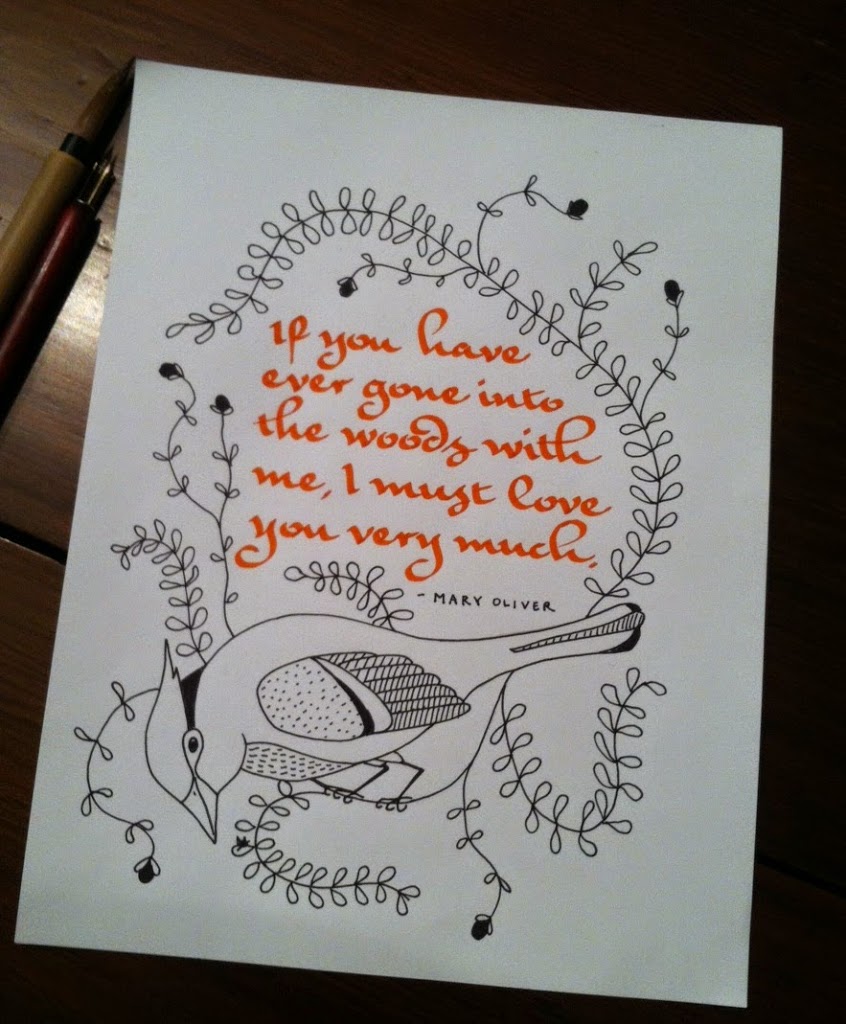 If you have
ever gone into
the woods with
me, I must love
you very much.
- MARY OLIVER